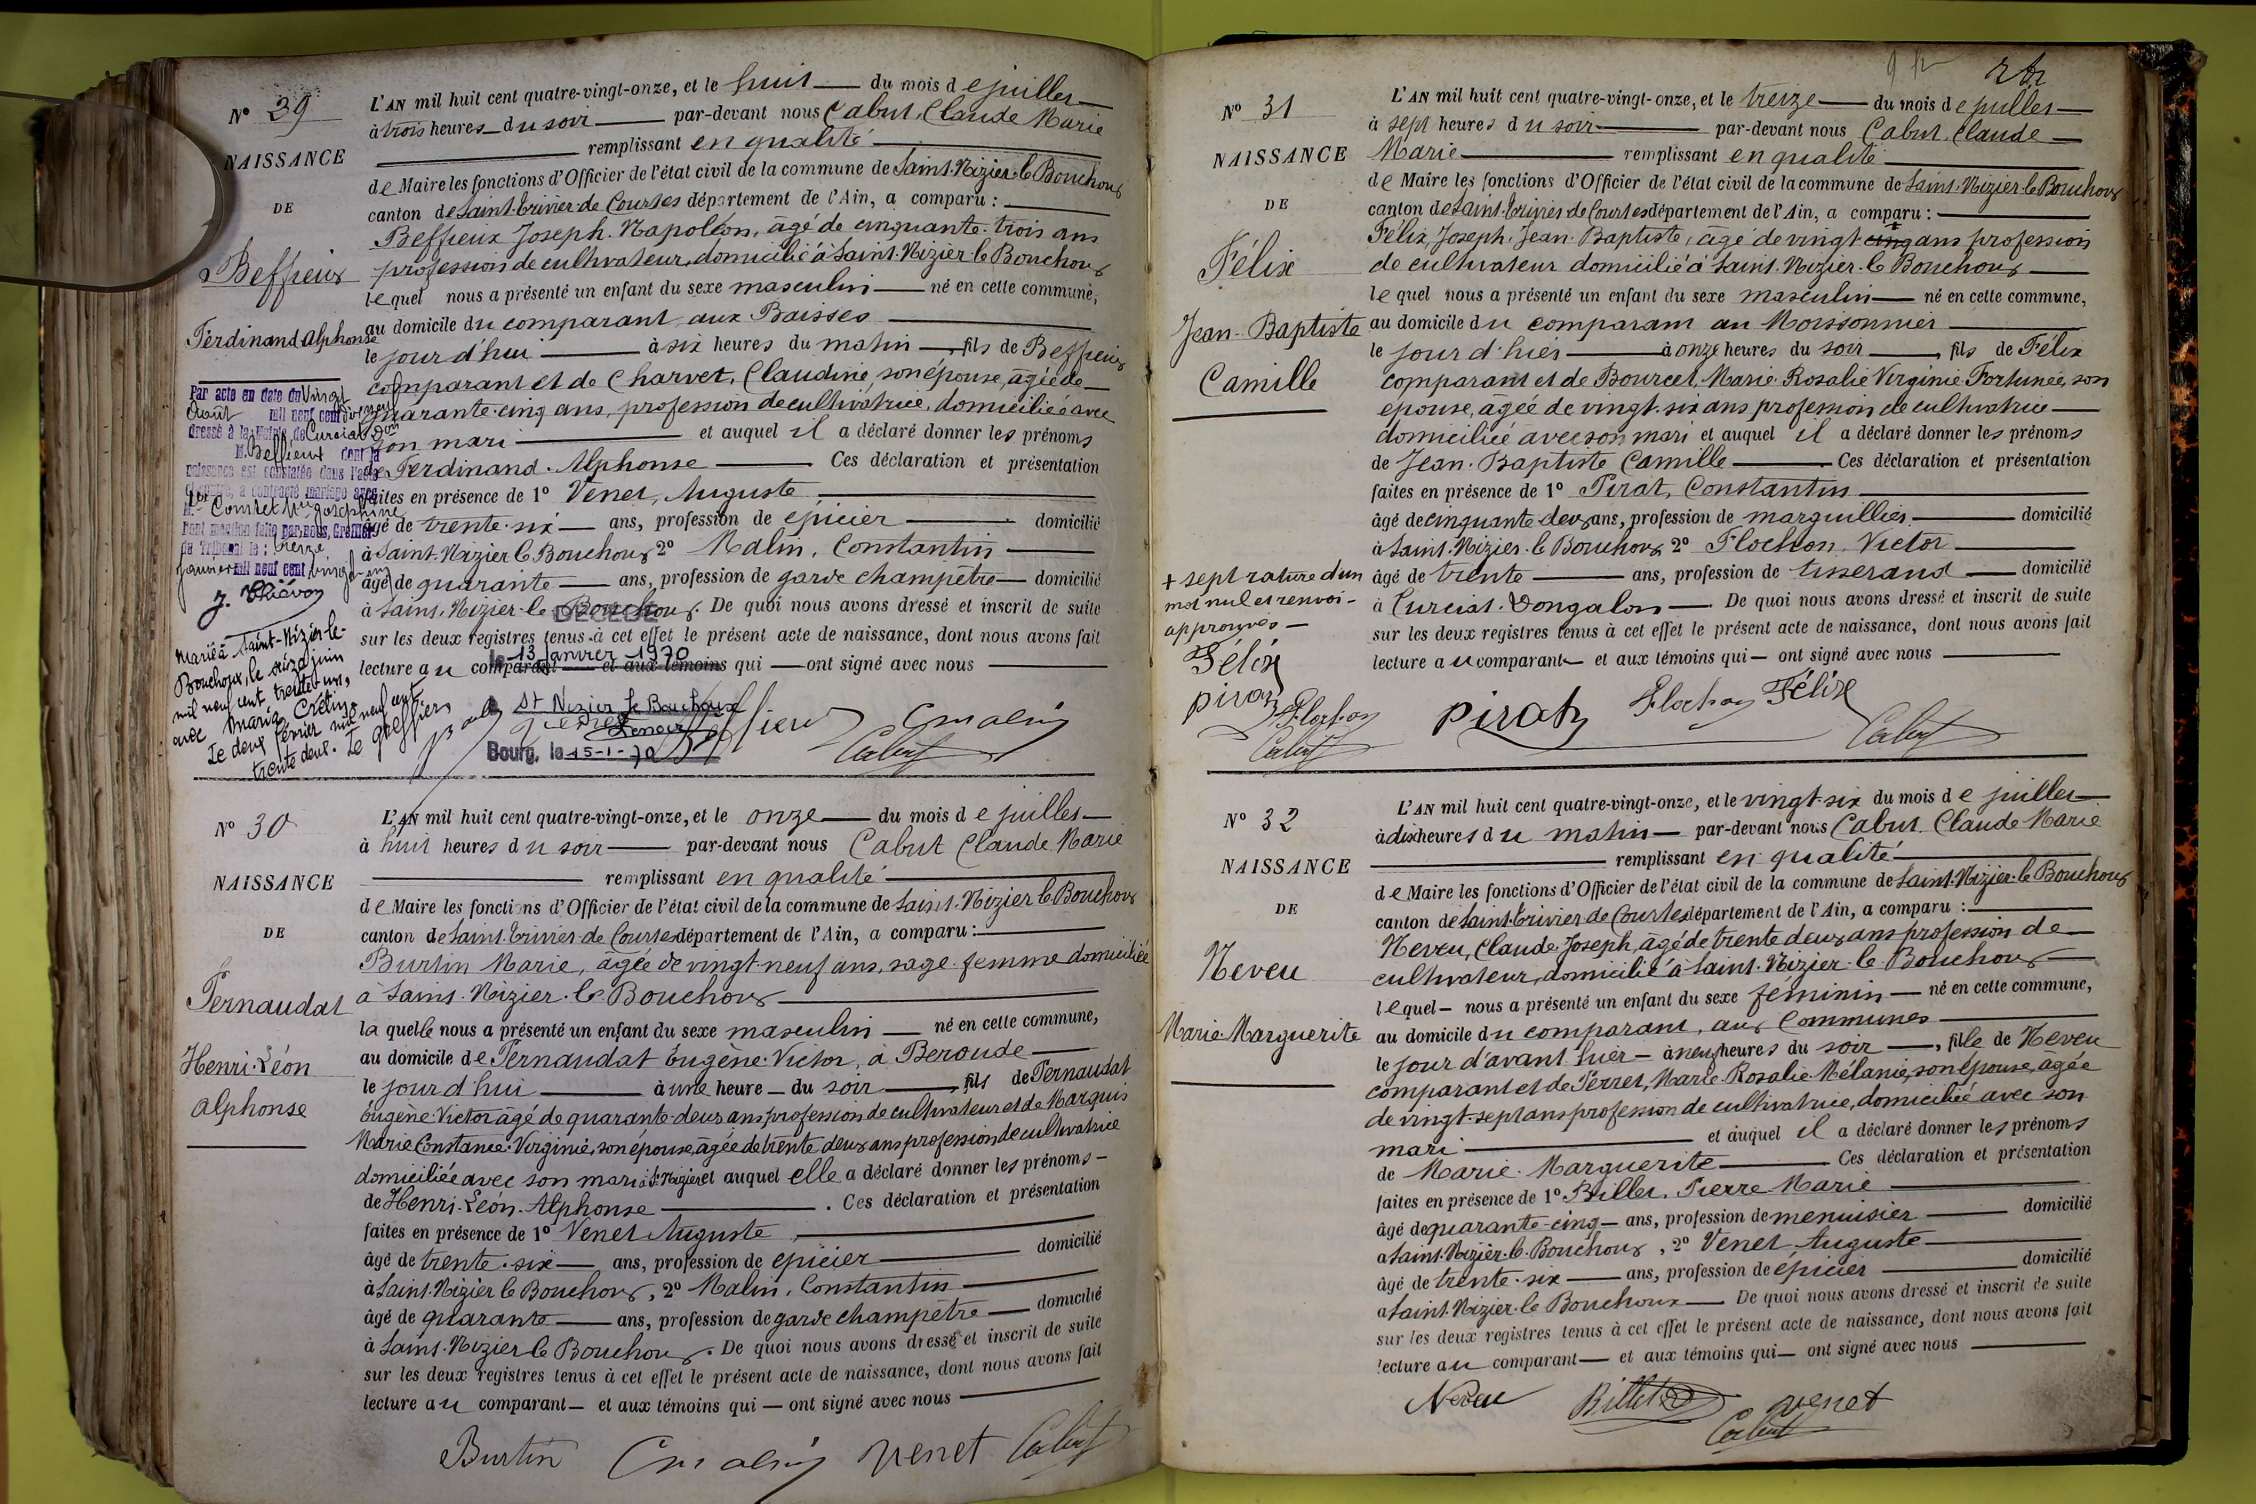 N° 39
NAISSANCE
DE
Beffieux
Ferdinand Alphonse
L'AN mil huit cent quatre-vingt-onze, et le huit du mois de juillet
à trois heures du soir par-devant nous Cabut, Claude Marie
remplissant en qualité
de Maire les fonctions d'Officier de l'état civil de la commune de Saint-Nizier-le-Bouchoux
canton de Saint-Trivier-de-Courtes département de l'Ain, a comparu :
Beffieux Joseph-Napoléon, âgé de cinquante-trois ans
profession de cultivateur, domicilié à Saint-Nizier-le-Bouchoux
lequel nous a présenté un enfant du sexe masculin né en cette commune,
au domicile du comparant aux Baisses
le jour d'hui à six heures du matin, fils de Beffieux
comparant et de Charvet, Claudine, son épouse, âgée de
quarante-cinq ans, profession de cultivatrice, domiciliée avec
son mari et auquel il a déclaré donner les prénoms
de Ferdinand-Alphonse Ces déclaration et présentation
faites en présence de 1° Venet, Auguste
âgé de trente-six ans, profession de épicier domicilié
à Saint-Nizier le Bouchoux 2° Malin, Constantin
âgé de quarante ans, profession de garde champêtre domicilié
à Saint-Nizier-le-Bouchoux. De quoi nous avons dressé et inscrit de suite
sur les deux registres tenus à cet effet le présent acte de naissance, dont nous avons fait
lecture au comparant et aux témoins qui ont signé avec nous
Par acte en date du Vingt
Août mil neuf cent dix neuf
dressé à la Mairie de Curciat-Don
M. Beffieux dont la
naissance est constatée dans l'acte
ci-contre, a contracté mariage avec
Mle Comtet Mie Joséphine
Dont mention faite par nous, Greffier
du Tribunal le : treize
janvier mil neuf cent vingt-un
J. Thiévon
Marié à Saint-Nizier-le-
Bouchoux, le seize juin
mil neuf cent trente-un,
avec Maria Crétin.
Le deux février mil neuf cent
trente deux. Le greffier
DÉCÉDÉ
le 13 Janvier 1970
à St Nizier le Bouchoux
Bourg, le 15-1-70
Beffieux Cmalin
Cabut
N° 30
NAISSANCE
DE
Pernaudat
Henri-Léon
Alphonse
L'AN mil huit cent quatre-vingt-onze, et le onze du mois de juillet
à huit heures du soir par-devant nous Cabut Claude Marie
remplissant en qualité
de Maire les fonctions d'Officier de l'état civil de la commune de Saint-Nizier le Bouchoux
canton de Saint-Trivier-de-Courtes département de l'Ain, a comparu :
Burtin Marie, âgée de vingt-neuf ans, sage-femme domiciliée
à Saint-Nizier-le-Bouchoux
laquelle nous a présenté un enfant du sexe masculin né en cette commune,
au domicile de Pernaudat Eugène-Victor, à Beroude
le jour d'hui à une heure du soir fils de Pernaudat
Eugène-Victor âgé de quarante-deux ans profession de cultivateur et de Marquis
Marie Constance-Virginie, son épouse, âgée de trente deux ans profession de cultivatrice
domiciliée avec son mari à St Nizier et auquel elle a déclaré donner les prénoms
de Henri-Léon-Alphonse. Ces déclaration et présentation
faites en présence de 1° Venet Auguste
âgé de trente-six ans, profession de épicier domicilié
à Saint-Nizier le Bouchoux, 2° Malin, Constantin
âgé de quarante ans, profession de garde champêtre domicilié
à Saint-Nizier le Bouchoux. De quoi nous avons dressé et inscrit de suite
sur les deux registres tenus à cet effet le présent acte de naissance, dont nous avons fait
lecture au comparant et aux témoins qui ont signé avec nous
Burtin Cmalin Venet Cabut
N° 31
NAISSANCE
DE
Félix
Jean-Baptiste
Camille
L'AN mil huit cent quatre-vingt-onze, et le treize du mois de juillet
à sept heures du soir par-devant nous Cabut, Claude
Marie remplissant en qualité
de Maire les fonctions d'Officier de l'état civil de la commune de Saint-Nizier-le-Bouchoux
canton de Saint-Trivier de Courtes département de l'Ain, a comparu :
Félix, Joseph-Jean-Baptiste, âgé de vingt cinq + ans profession
de cultivateur domicilié à Saint-Nizier-le Bouchoux
lequel nous a présenté un enfant du sexe masculin né en cette commune,
au domicile du comparant au Moissonnier
le jour d'hier à onze heures du soir, fils de Félix
comparant et de Bourcet, Marie-Rosalie Virginie Fortunée, son
épouse, âgée de vingt-six ans profession de cultivatrice
domiciliée avec son mari et auquel il a déclaré donner les prénoms
de Jean-Baptiste Camille Ces déclaration et présentation
faites en présence de 1° Pirat, Constantin
âgé de cinquante-deux ans, profession de marguillier domicilié
à Saint-Nizier-le Bouchoux 2° Flochon, Victor
âgé de trente ans, profession de tisserand domicilié
à Curciat-Dongalon De quoi nous avons dressé et inscrit de suite
sur les deux registres tenus à cet effet le présent acte de naissance, dont nous avons fait
lecture au comparant et aux témoins qui ont signé avec nous
+ sept rature d'un
mot nul et renvoi
approuvés
Félix
Pirat
Flochon
Cabut
Pirat Flochon Félix
Cabut
N° 32
NAISSANCE
DE
Neveu
Marie-Marguerite
L'AN mil huit cent quatre-vingt-onze, et le vingt-six du mois de juillet
à dix heures du matin par-devant nous Cabut, Claude Marie
remplissant en qualité
de Maire les fonctions d'Officier de l'état civil de la commune de Saint-Nizier-le Bouchoux
canton de Saint-Trivier de Courtes département de l'Ain, a comparu :
Neveu, Claude-Joseph, âgé de trente deux ans profession de
cultivateur, domicilié à Saint-Nizier-le Bouchoux
lequel nous a présenté un enfant du sexe féminin né en cette commune,
au domicile du comparant, aux Communes
le jour d'avant hier à neuf heures du soir, fille de Neveu
comparant et de Perret, Marie-Rosalie Mélanie, son épouse, âgée
de vingt-sept ans profession de cultivatrice, domiciliée avec son
mari et auquel il a déclaré donner les prénoms
de Marie-Marguerite Ces déclaration et présentation
faites en présence de 1° Billet, Pierre-Marie
âgé de quarante-cinq ans, profession de menuisier domicilié
à Saint-Nizier-le-Bouchoux, 2° Venet Auguste
âgé de trente-six ans, profession de épicier domicilié
à Saint-Nizier-le Bouchoux De quoi nous avons dressé et inscrit de suite
sur les deux registres tenus à cet effet le présent acte de naissance, dont nous avons fait
lecture au comparant et aux témoins qui ont signé avec nous
Neveu Billet Venet
Cabut